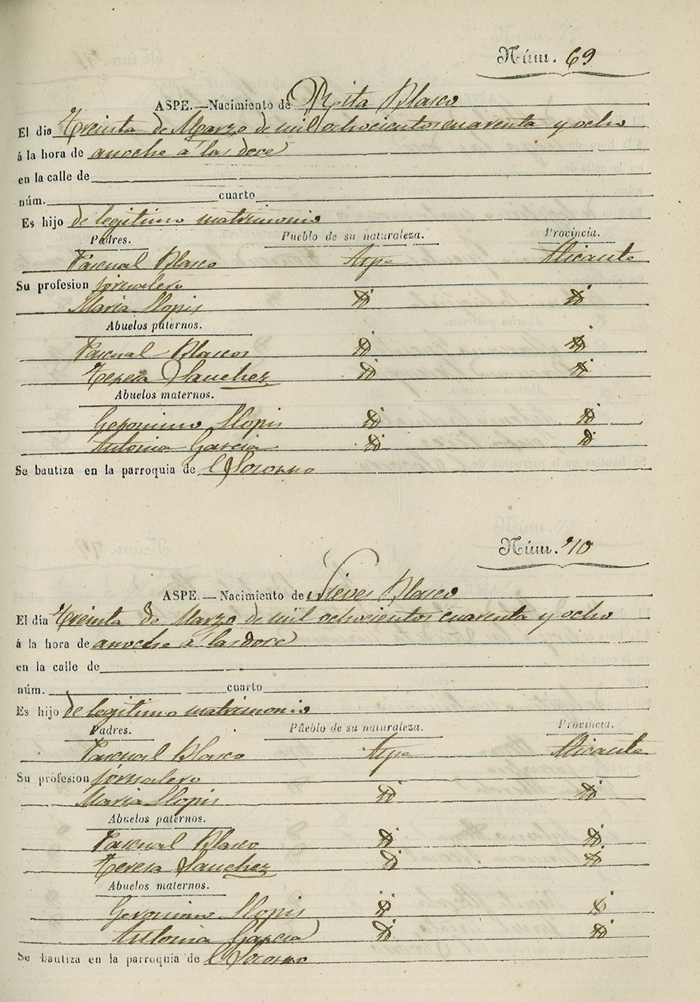 Núm. 69
ASPE.—Nacimiento de Rita Blasco
El dia Treinta de Marzo de mil ochocientos cuarenta y ocho
á la hora de anoche a las doce
en la calle de
núm. cuarto
Es hijo de legitimo matrimonio
Padres. Pueblo de su naturaleza. Provincia.
Pascual Blasco Aspe Alicante
Su profesion jornalero
Maria Llopis Id Id
Abuelos paternos.
Pascual Blascos Id Id
Teresa Sanchez Id Id
Abuelos maternos.
Geronimo Llopis Id Id
Antonia Garcia Id Id
Se bautiza en la parroquia de el Socorro
Núm. 70
ASPE.—Nacimiento de Nieves Blasco
El día Treinta de Marzo de mil ochocientos cuarenta y ocho
á la hora de anoche a las doce
en la calle de
núm. cuarto
Es hijo de legitimo matrimonio
Padres. Pueblo de su naturaleza. Provincia.
Pascual Blasco Aspe Alicante
Su profesion jornalero
Maria Llopis Id Id
Abuelos paternos.
Pascual Blasco Id Id
Teresa Sanchez Id Id
Abuelos maternos.
Geronimo Llopis Id Id
Antonia Garcia Id Id
Se bautiza en la parroquia de el Socorro